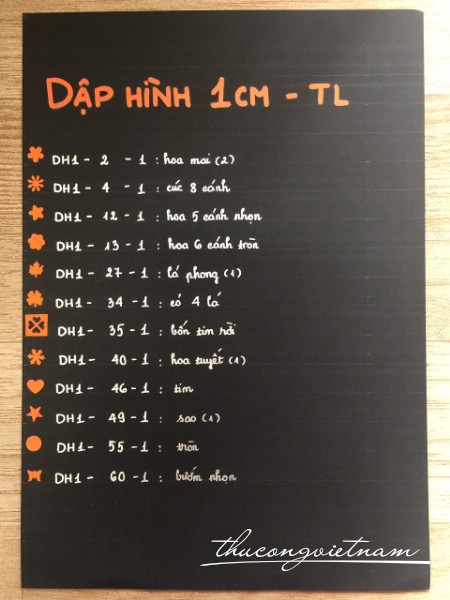 DẬP HÌNH 1CM - TL
DH1 - 2 - 1 : hoa mai (2)
DH1 - 4 - 1 : cúc 8 cánh
DH1 - 12 - 1 : hoa 5 cánh nhọn
DH1 - 13 - 1 : hoa 6 cánh tròn
DH1 - 27 - 1 : lá phong (1)
DH1 - 34 - 1 : cỏ 4 lá
DH1 - 35 - 1 : bốn tim rời
DH1 - 40 - 1 : hoa tuyết (1)
DH1 - 46 - 1 : tim
DH1 - 49 - 1 : sao (1)
DH1 - 55 - 1 : tròn
DH1 - 60 - 1 : bướm nhọn
thucongvietnam